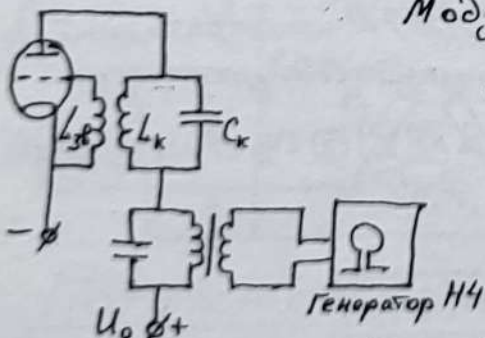 Мод
Lзв Lк Cк
−
U₀ +
Генератор НЧ